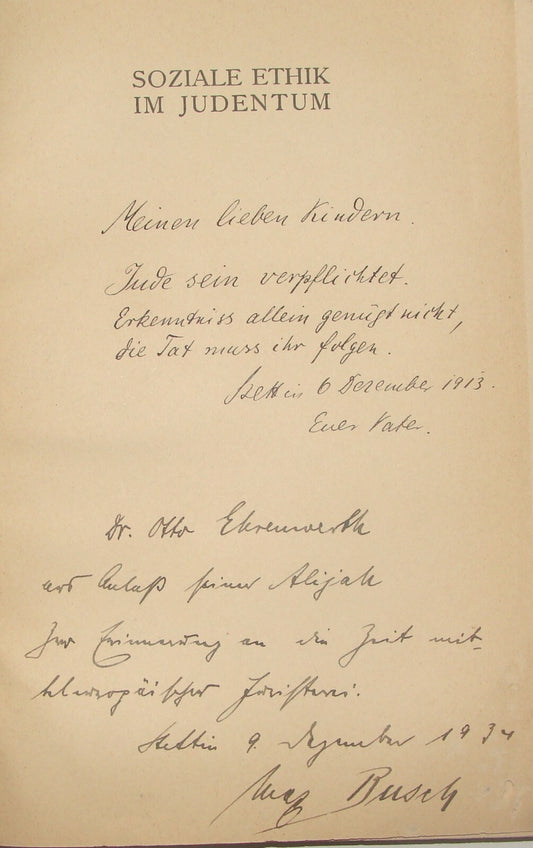 SOZIALE ETHIK
IM JUDENTUM
Meinen lieben Kindern.
Jude sein verpflichtet.
Erkenntniss allein genügt nicht,
die Tat muss ihr folgen.
Stettin 6 Dezember 1913.
Euer Vater.
Dr. Otto Ehrenwerth
aus Anlaß seiner Alijah
Zur Erinnerung an die Zeit mit-
teleuropäischer Juristerei.
Stettin 9. Dezember 1934
Max Busch